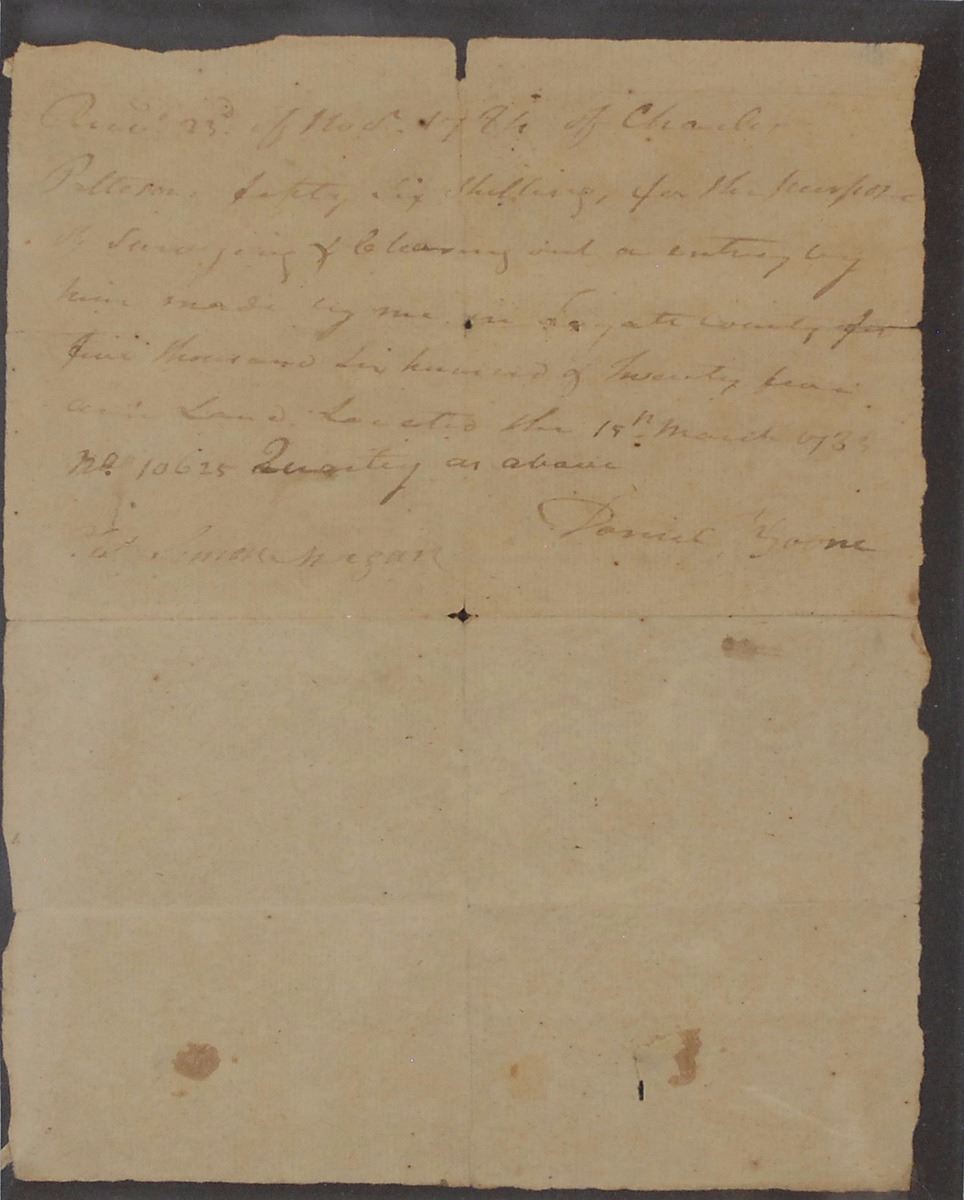 23d of Nov. 178 of Charles
Patteson fifty Six Shillings, for the purpose
of Surveying & Clearing out a entry by
him made by me in Fayatte County for
five thousand Six hundred & Twenty
Land Located the 15th March 178
No. 10625 Quantity as above
Daniel Boone